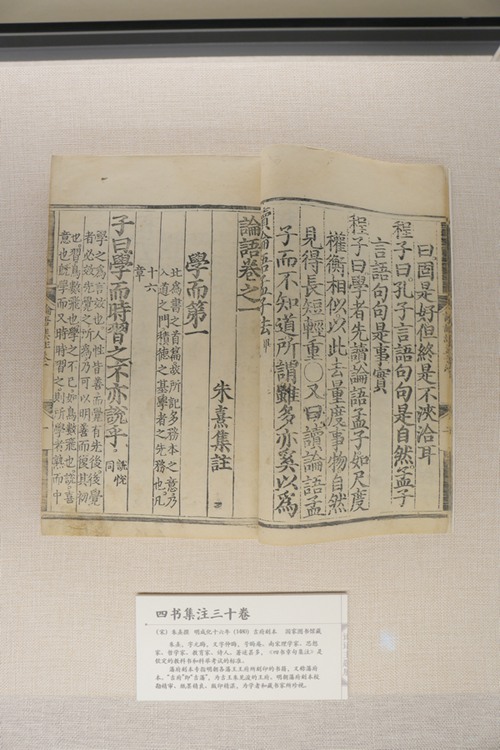 曰固是好但終是不浹洽耳
程子曰孔子言語句句是自然孟子
言語句句是事實
程子曰學者先讀論語孟子如尺度
權衡相似以此去量度事物自然
見得長短輕重○又曰讀論語孟
子而不知道所謂雖多亦奚以為
讀論語孟子法
論語卷之一
朱熹集註
學而第一
此為書之首篇故所記多務本之意乃
入道之門積德之基學者之先務也凡
十六
章
子曰學而時習之不亦說乎
說悅
同
學之為言效也人性皆善而覺有先後後覺
者必效先覺之所為乃可以明善而復其初
也習鳥數飛也學之不已如鳥數飛也說喜
意也既學而又時時習之則所學者熟而中
四书集注三十卷
（宋）朱熹撰 明成化十六年（1480）吉府刻本 国家图书馆藏
朱熹，字元晦，又字仲晦，号晦庵，南宋理学家、思想
家、哲学家、教育家、诗人。著述甚多，《四书章句集注》是
钦定的教科书和科举考试的标准。
藩府刻本专指明朝各藩王府所刻印的书籍，又称藩府
本。“吉府”即“吉藩”，为吉王朱见浚的王府。明朝藩府刻本校
勘精审、纸墨精良、版印精洁，为学者和藏书家所珍视。